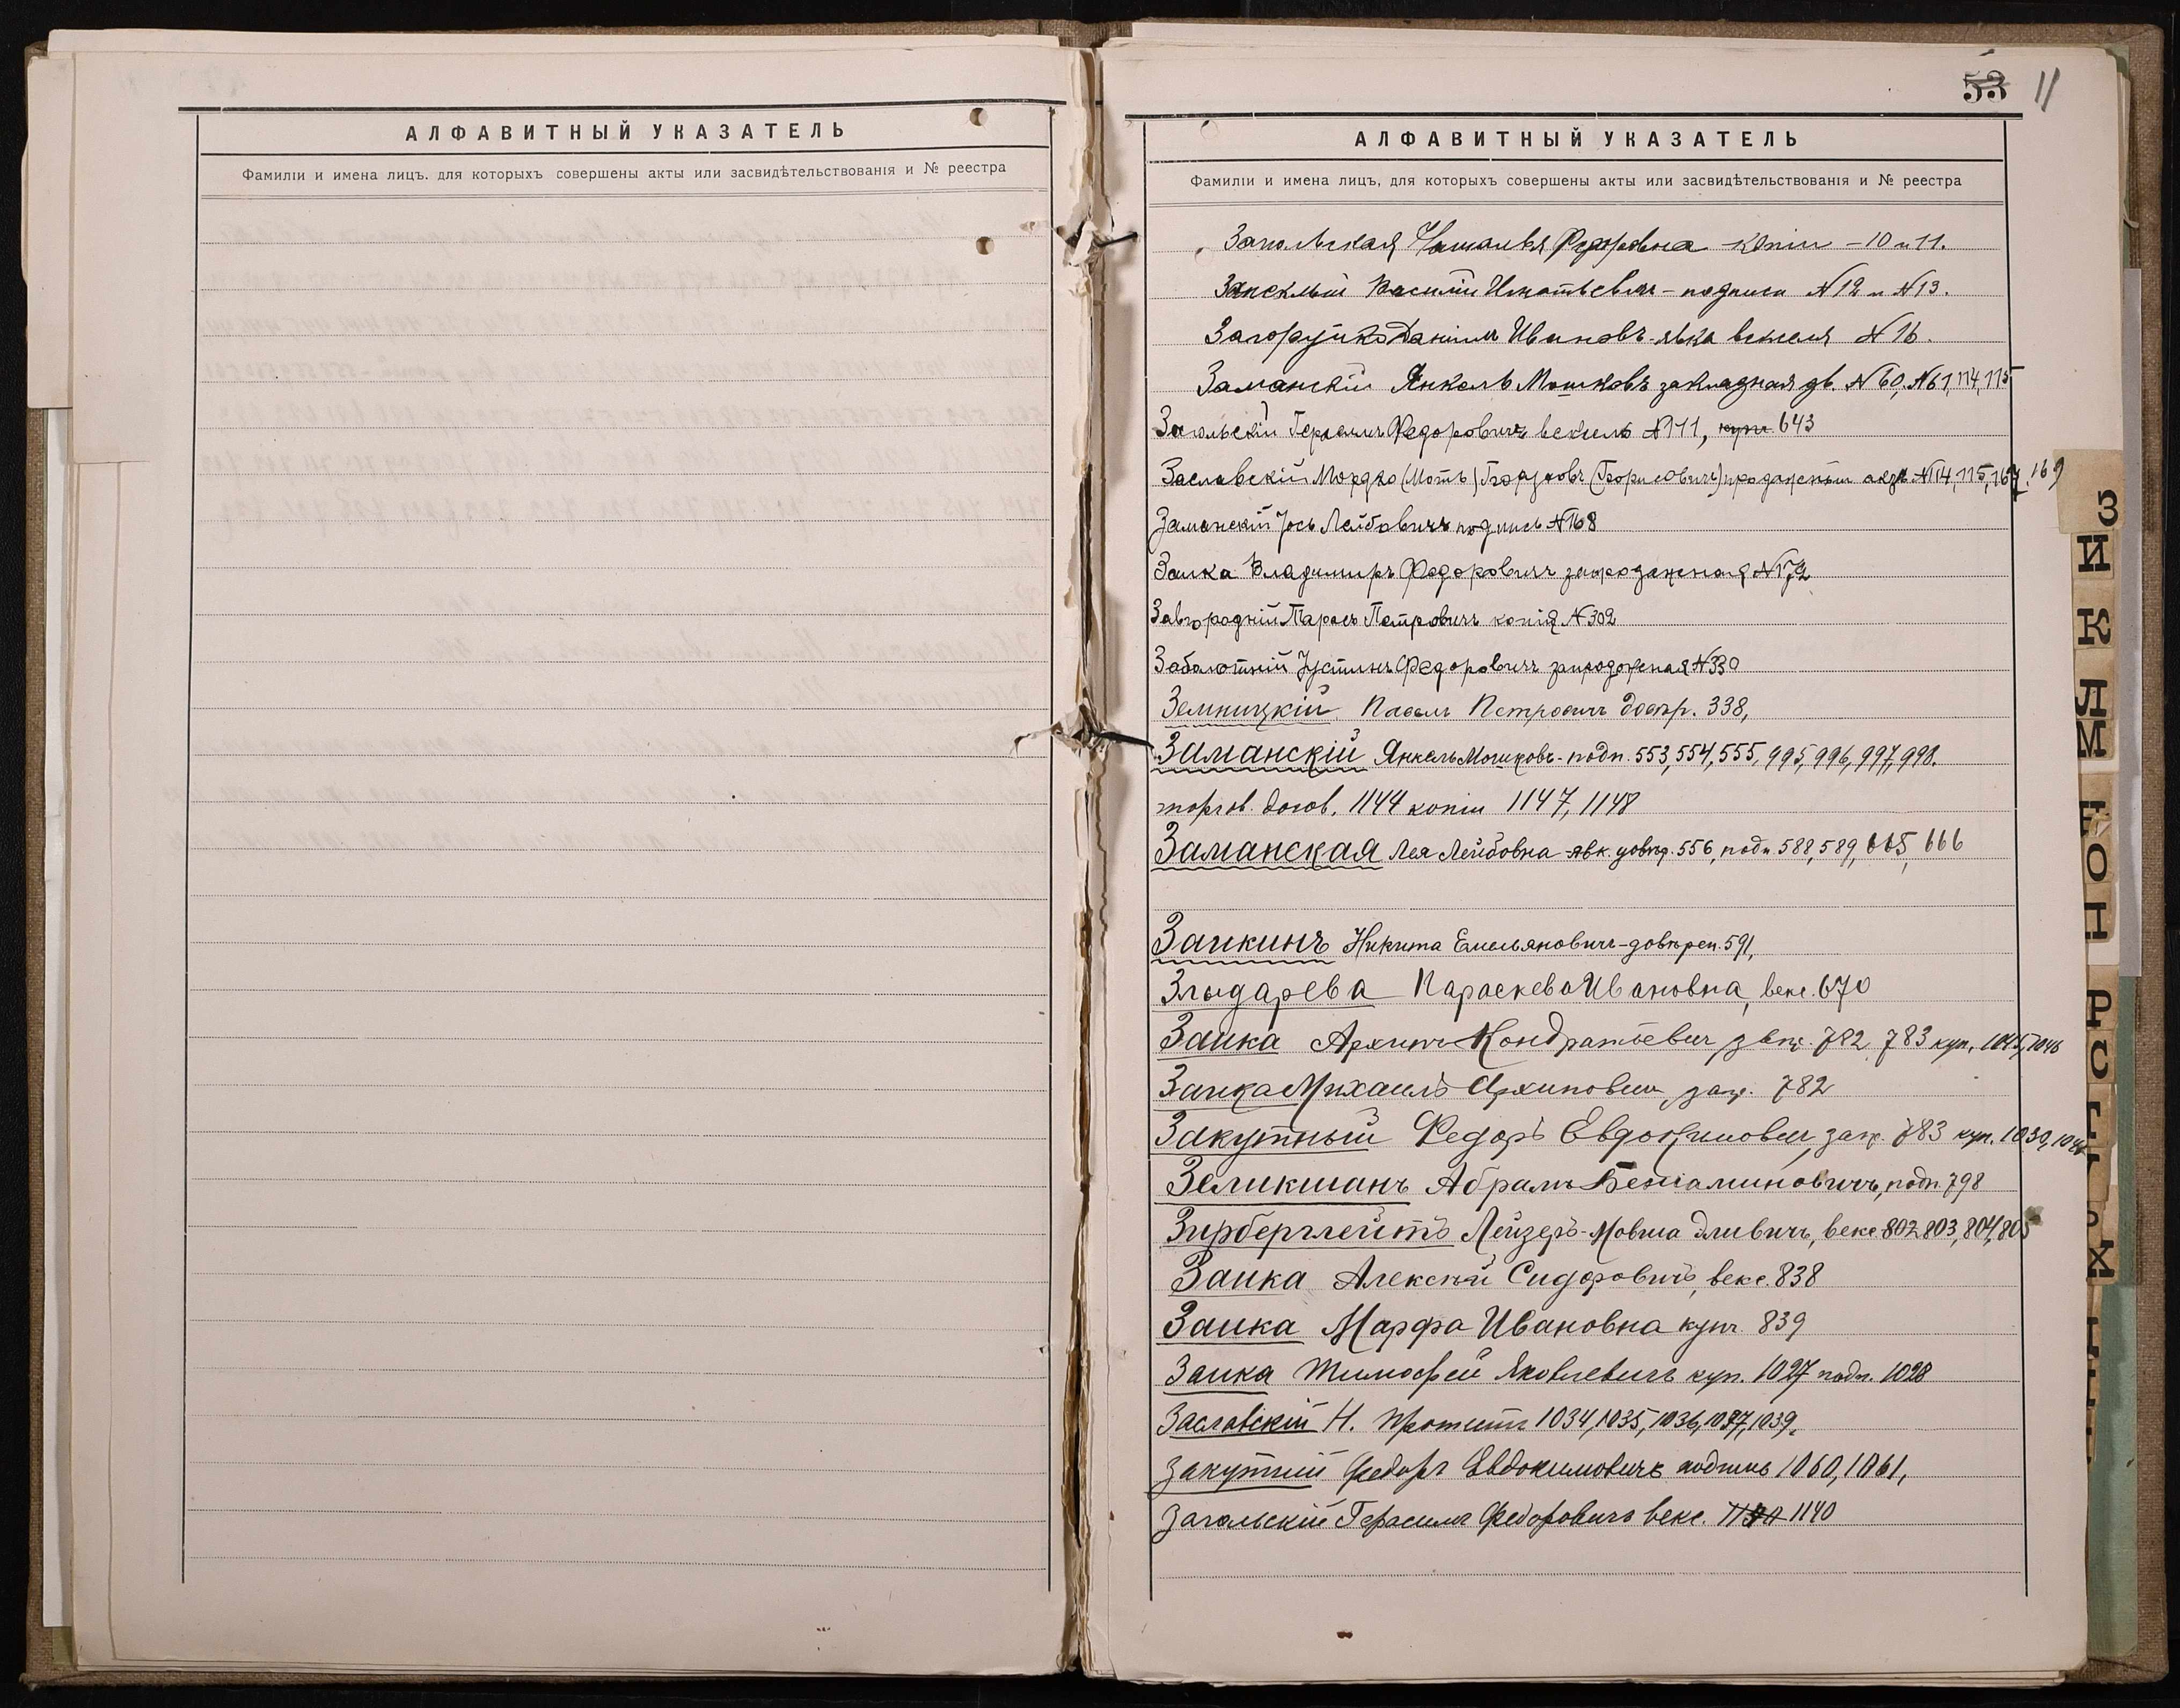 АЛФАВИТНЫЙ УКАЗАТЕЛЬ
Фамиліи и имена лицъ, для которыхъ совершены акты или засвидѣтельствованія и № реестра
53 11
АЛФАВИТНЫЙ УКАЗАТЕЛЬ
Фамиліи и имена лицъ, для которыхъ совершены акты или засвидѣтельствованія и № реестра
Федоровна копіи - 10 и 11.
Василій Игнатьевичъ - подписи №12 и №13.
Загоруйко Даніилъ Ивановъ - явка векселя №16.
Заманскій Янкель Мошковъ закладная дв. №60, №61, 114, 115
Загольскій Герасимъ Федоровичъ вексель №111, купч. 643
Заславскій Мордко (Мотъ) (Борисовичъ) №114, 115, 167, 169
Заманскій Іось Лейбовичъ подпись №168
Заика Владимиръ Федоровичъ запродажная №172
Завгородній Тарасъ Петровичъ копія №302
Заболотній Устинъ Федоровичъ запродажная №330
Земницкій Павелъ Петровичъ довѣр. 338,
Заманскій Янкель Мошковъ - подп. 553, 554, 555, 995, 996, 997, 998.
торгов. догов. 1144 копіи 1147, 1148
Заманская Лея Лейбовна - явк. довѣр. 556, подп. 588, 589, 665, 666
Заикинъ Никита Емельяновичъ - довѣрен. 591,
Злыдарева Параскева Ивановна, векс. 670
Заика Архипъ Кондратьевич 782, 783 куп. 1045, 1046
Заика Михаилъ Архипович, зап. 782
Закутный Федоръ Евдокимович, зап. 783 куп. 1039, 1040
Зеликманъ Абрамъ Беніаминовичъ, подп. 798
Зирберглейтъ Лейзеръ-Мовша Эливичъ, векс. 802, 803, 804, 805
Заика Алексѣй Сидоровичъ, векс. 838
Заика Марфа Ивановна купч. 839
Заика Тимофей Яковлевичъ куп. 1027 подп. 1028
Заславскій Н. протесты 1034, 1035, 1036, 1037, 1039,
Закутній Федоръ Евдокимовичъ подпись 1060, 1061,
Загольскій Герасимъ Федоровичъ векс. 1140
З
И
К
Л
М
О
П
Р
С
Х